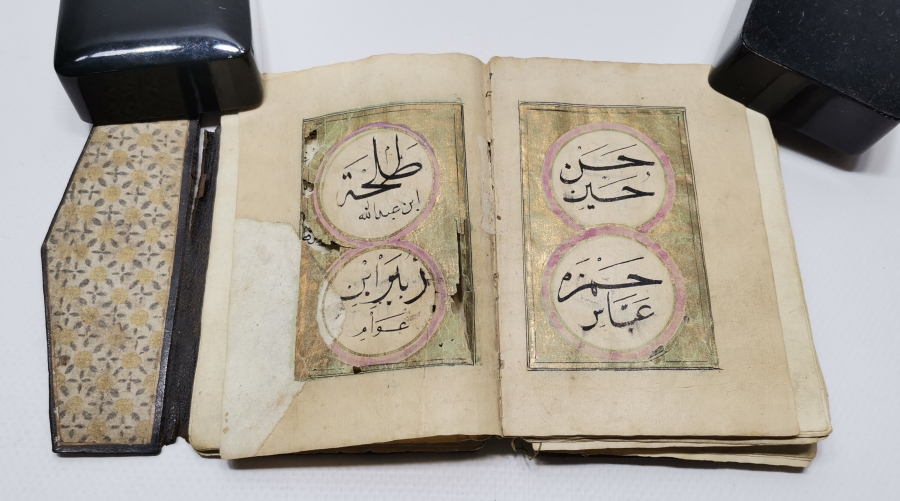 حسن
حسين
حمزه
عباس
طلحة
ابن عبدالله
زبير ابن
عوام